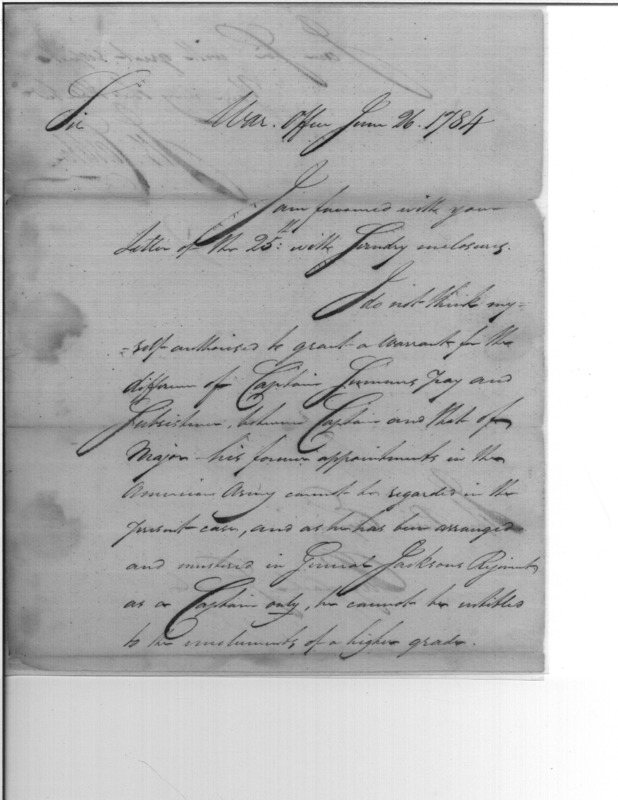 Sir War. Office June 26. 1784
I am favoured with your
Letter of the 25th: with Sundry enclosures.
I do not think my=
=self authorised to grant a Warrant for the
difference of Captain Pay and
Subsistence, between Captain and that of
Major - his former appointments in the
American Army cannot be regarded in the
present case, and as he has been arranged
and mustered in General Jacksons Regiment
as a Captain only, he cannot be entitled
to the emoluments of a higher grade.